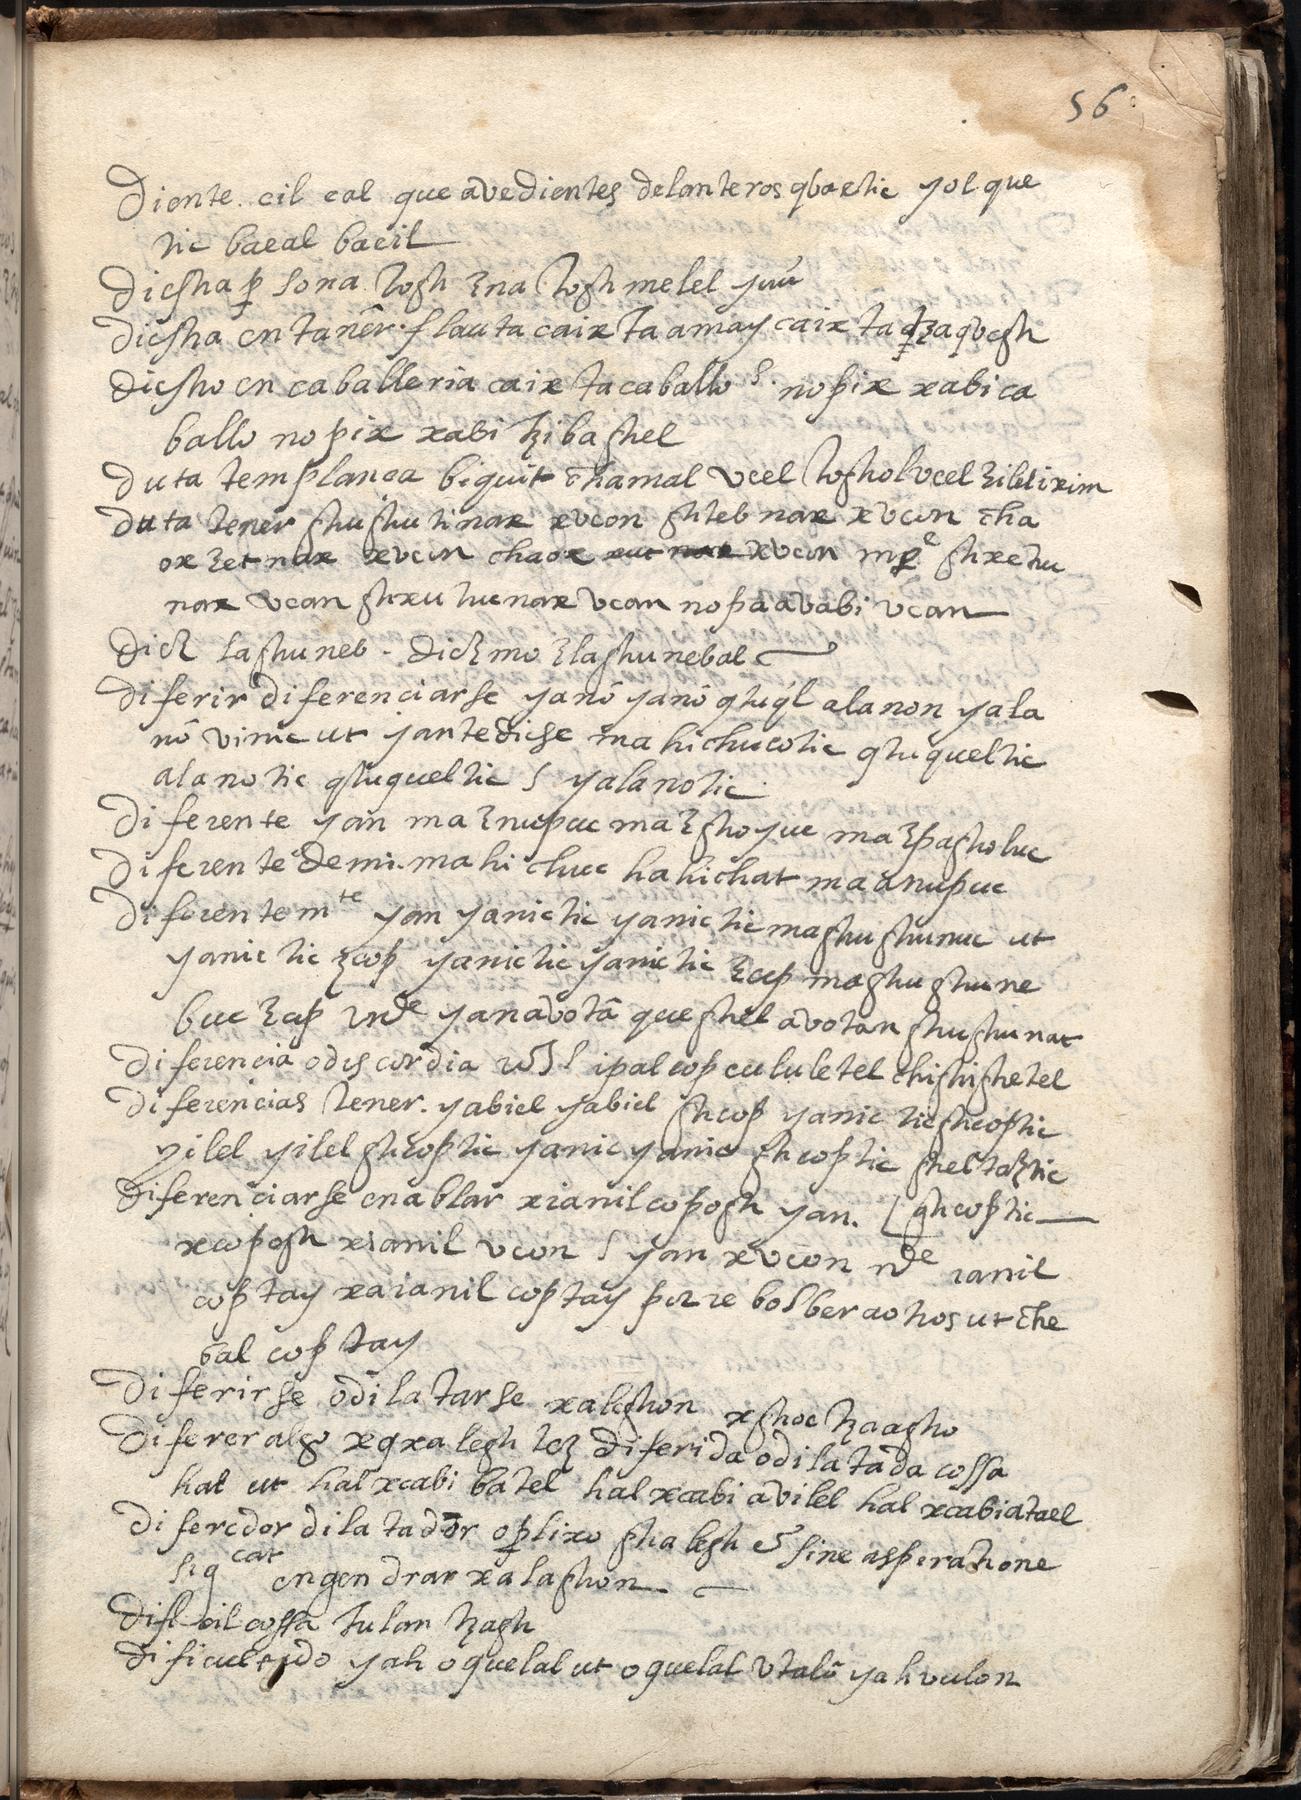 56
Diente. cil cal que avedientes delanteros qbaetic yol que
tic bacal bacil
Dicsha p̱ sona. logh Ɛna loghmelel yuu
Dicsha en tanêr. flauta caix ta amay caix ta
dicsho en caballeria caix ta caballo s. nopix xabi ca
ballo nopix xabi tzibaghel
duta templanca biquit chamal vcel logholvcel
duta tener ghughutinax xvcon ghteb nax xvcon cha
ox Ɛet nax xvcon chaox xvcon ghxetu
nax vcan ghxu tucnax vcan nopaavabi vcan
dicƐ laghuneb - dicƐmo Ɛlaghunebal
diferir diferenciarse yanô yanô alanon yala
nô vinic ut yan te dicse ma hichucotic qtuqueltic
alanotic qtuqueltic s yalanotic
Diferente yan ma Ɛnupuc ma Ɛghoyuc ma Ɛpagholuc
Diferente demi. ma hichuc hahichat ma anupuc
Diferentemte yan yanictic yanictic maghughunuc ut
yanictic Ɛcop yanictic yanictic Ɛcop maghughune
buc Ɛcop vnde yanavotâ queghel avotan ghughunat
diferencia odiscordia ipalcop cululetel chighighetel
diferencias tener. yabiel yabiel ghcop yanic ticghcoptic
yilel yilel ghcoptic yanic yanic ghcoptic gheltaƐtic
diferenciarse enablar xianilcopogh yan. [ghcoptic
xcopogh xianil vcon s yan xvcon nde ianil
coptay xaianil coptay bolber aotros ut che
bal coptay
Diferirse odilatarse xaleghon xghoc tzaagho
diferer algo xqxalegh diferida odilatada cossa
hal ut halxcabi batel halxcabi avilel halxcabiatael
diferedor dilatador op̱lixo ghalegh & sine asperatione
sigcat engendrar xalaghon
difícil cossa tulan tzagh
dificultado yah oquelal ut oquelal vtalô yahvulon